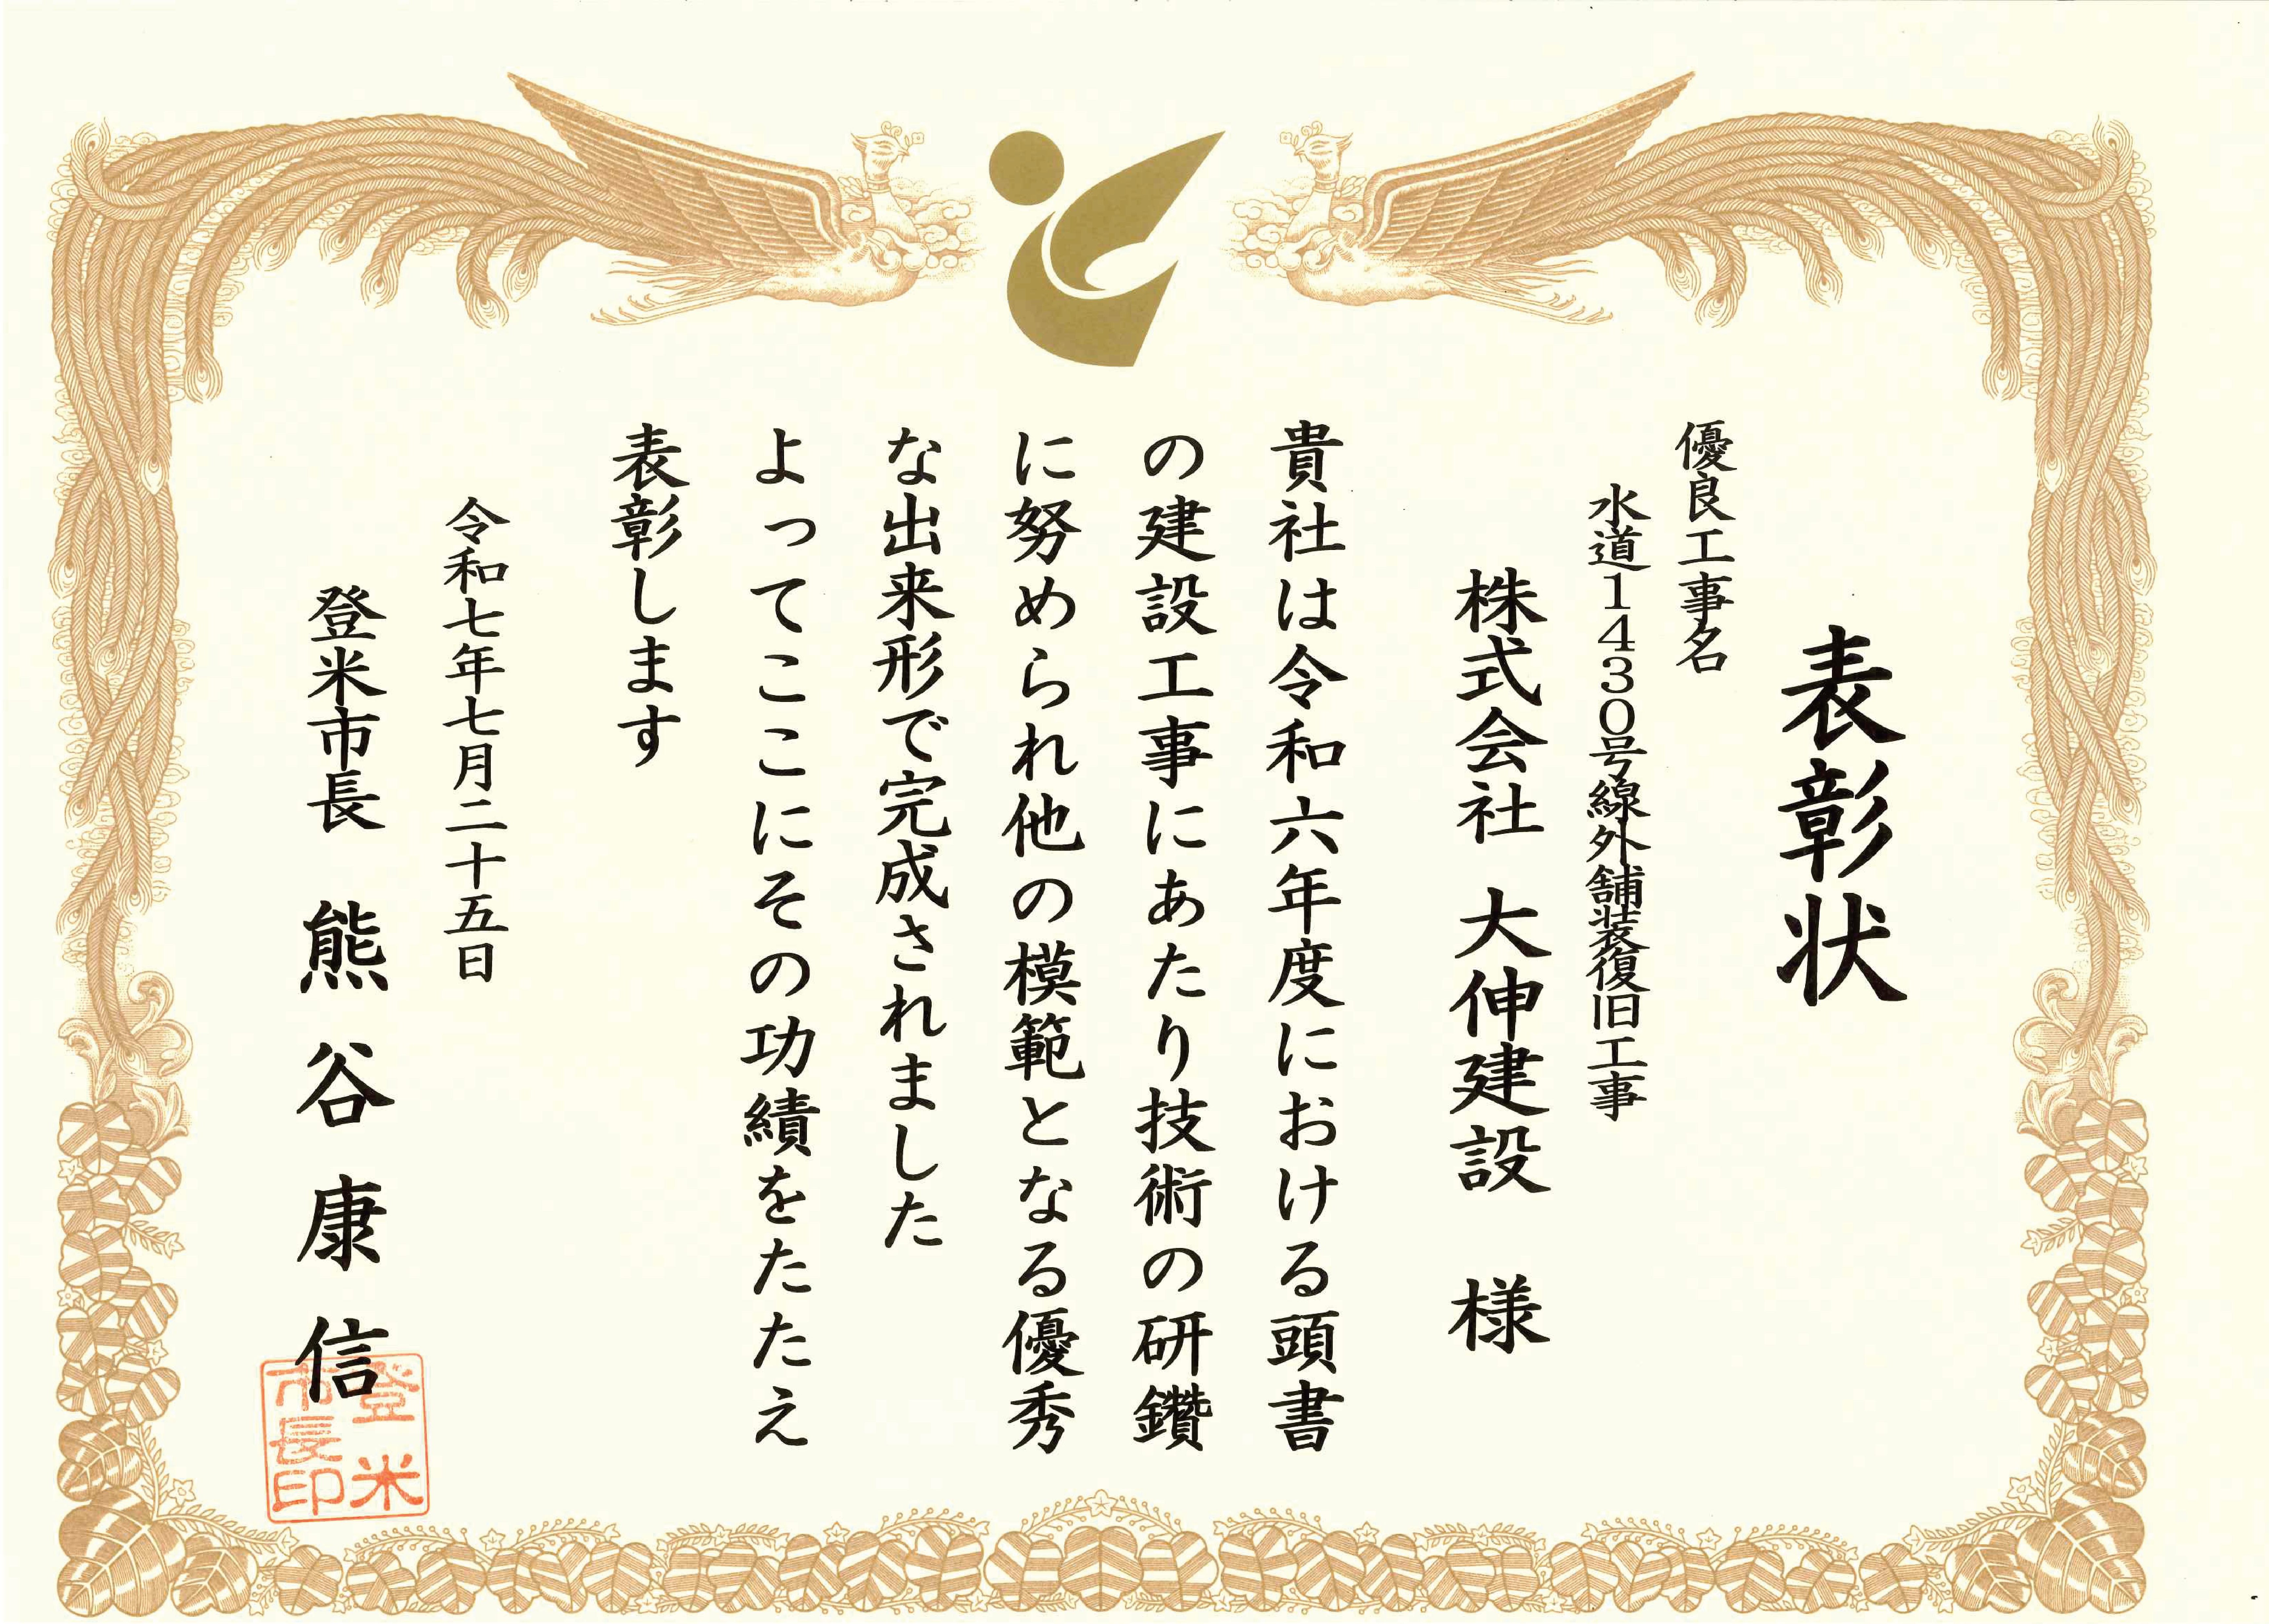 表彰状
優良工事名
水道1430号線外舗装復旧工事
株式会社 大伸建設 様
貴社は令和六年度における頭書
の建設工事にあたり技術の研鑽
に努められ他の模範となる優秀
な出来形で完成されました
よってここにその功績をたたえ
表彰します
令和七年七月二十五日
登米市長 熊谷康信
登米
市長印